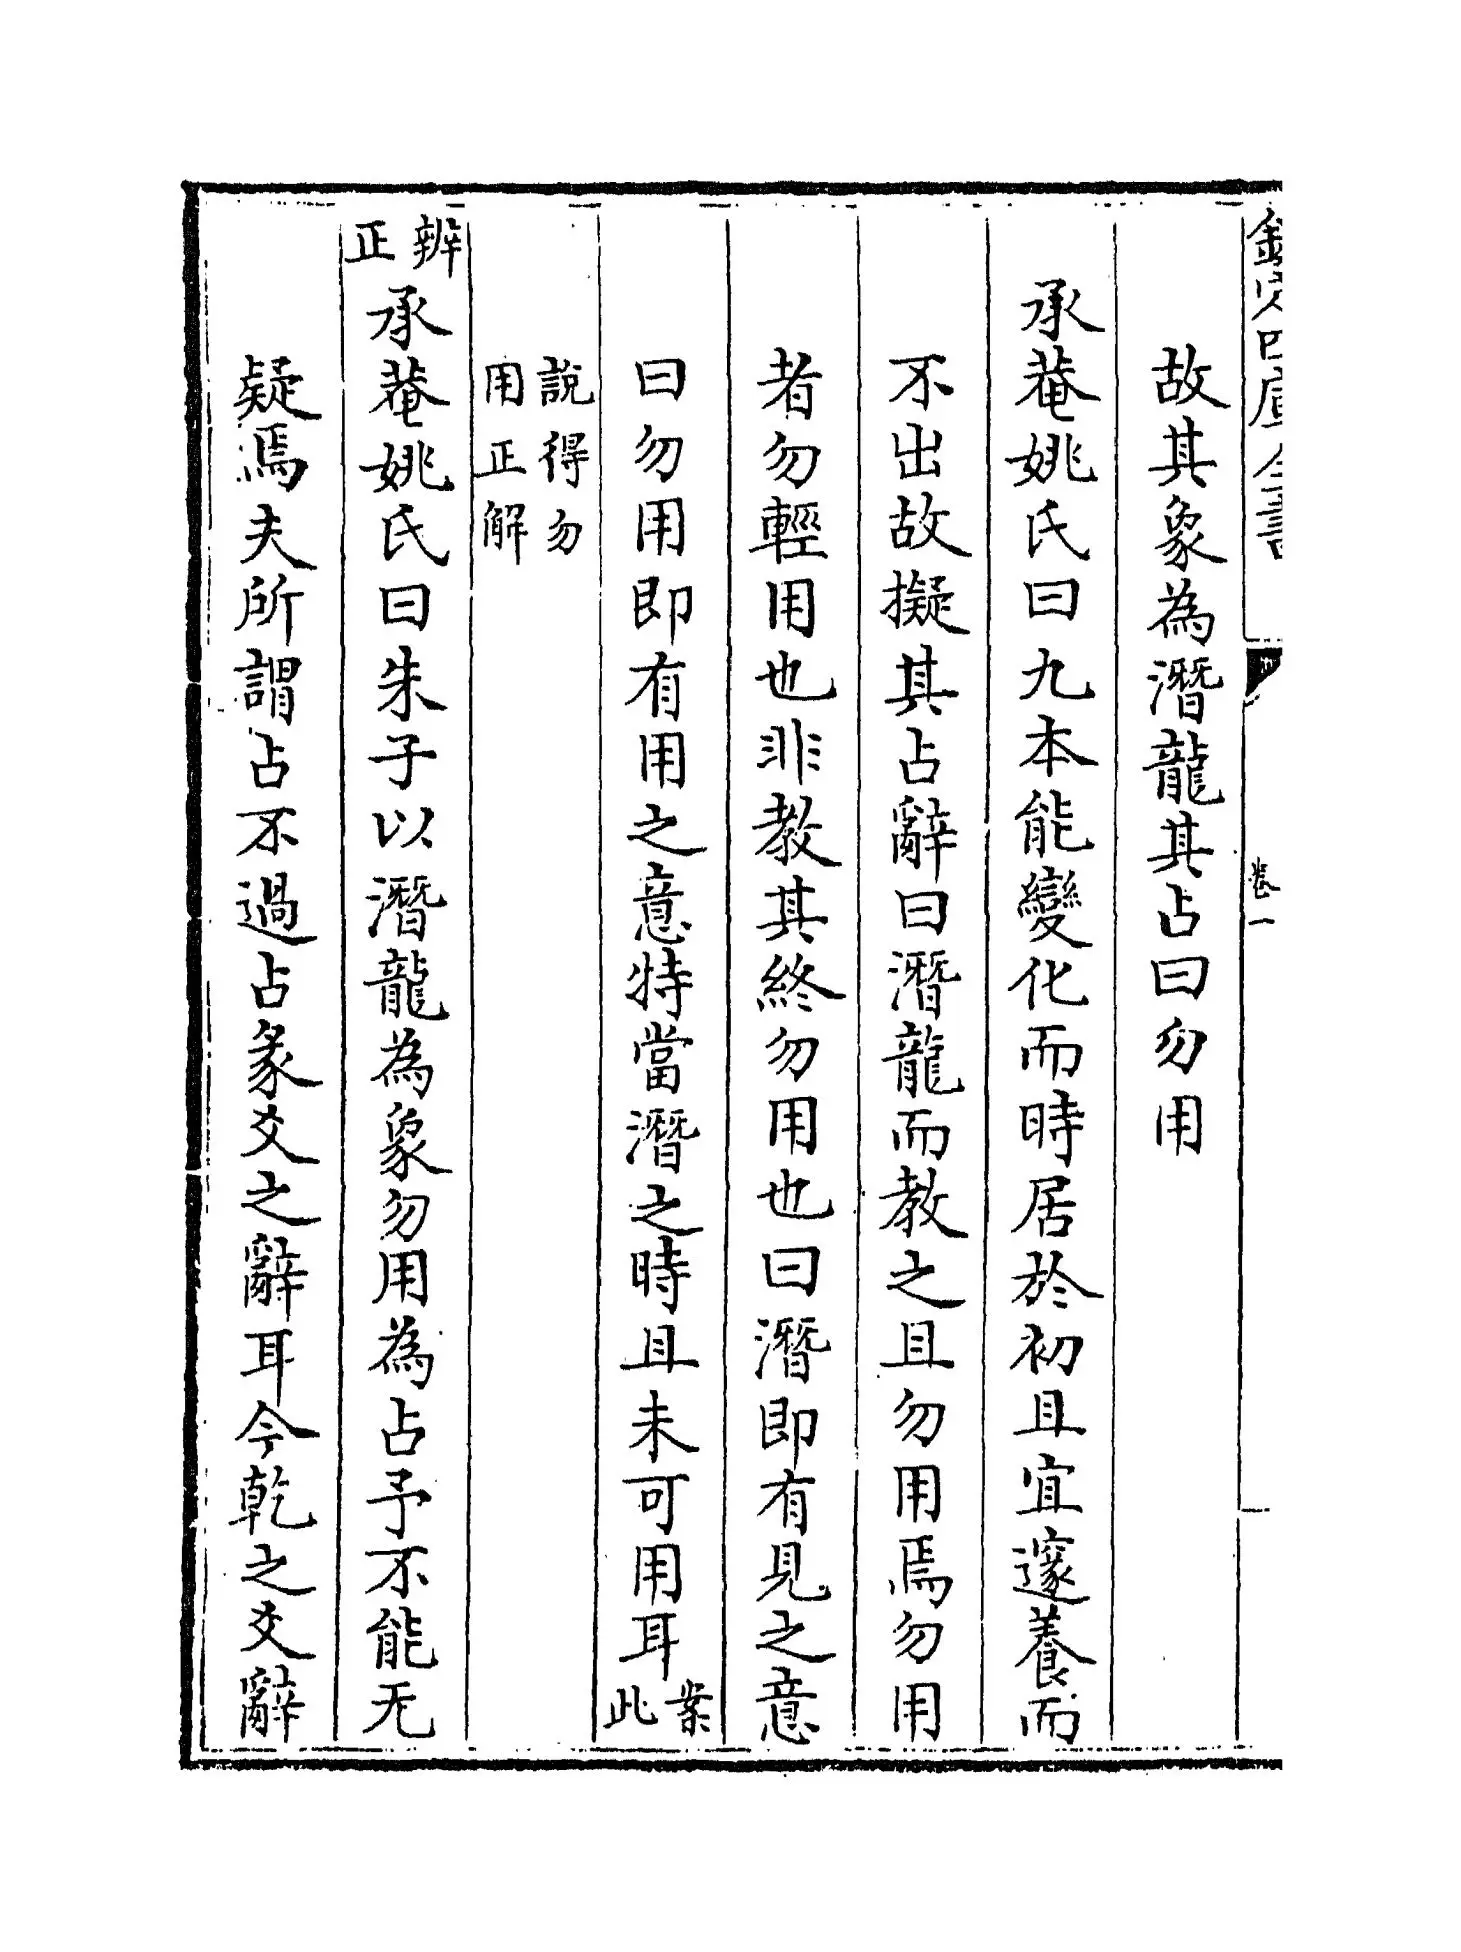 欽定四庫全書
卷一
故其象為潛龍其占曰勿用
承菴姚氏曰九本能變化而時居於初且宜邃養而
不出故擬其占辭曰潛龍而教之且勿用焉勿用
者勿輕用也非教其終勿用也曰潛即有見之意
曰勿用即有用之意特當潛之時且未可用耳案此
說得勿
用正解
辨正承菴姚氏曰朱子以潛龍為象勿用為占予不能无
疑焉夫所謂占不過占彖爻之辭耳今乾之爻辭